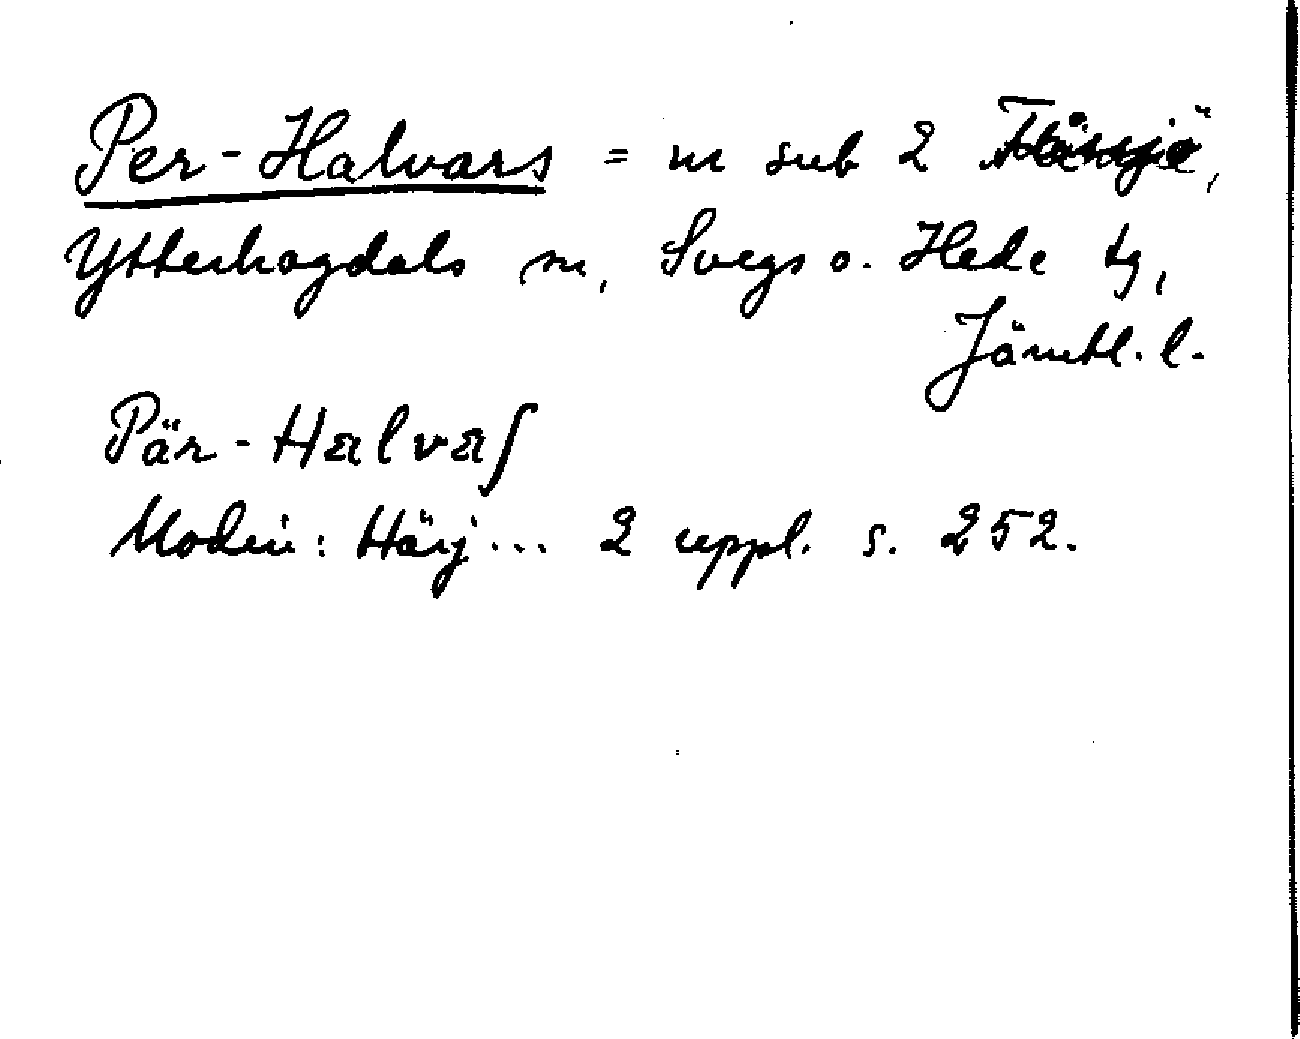 Per-Halvars = m sub 2
Ytterhogdals sn, Svegs o. Hede tg,
Jämtl. l.
Pär-Halvaʃ
Modin: Härj... 2 uppl. s. 252.